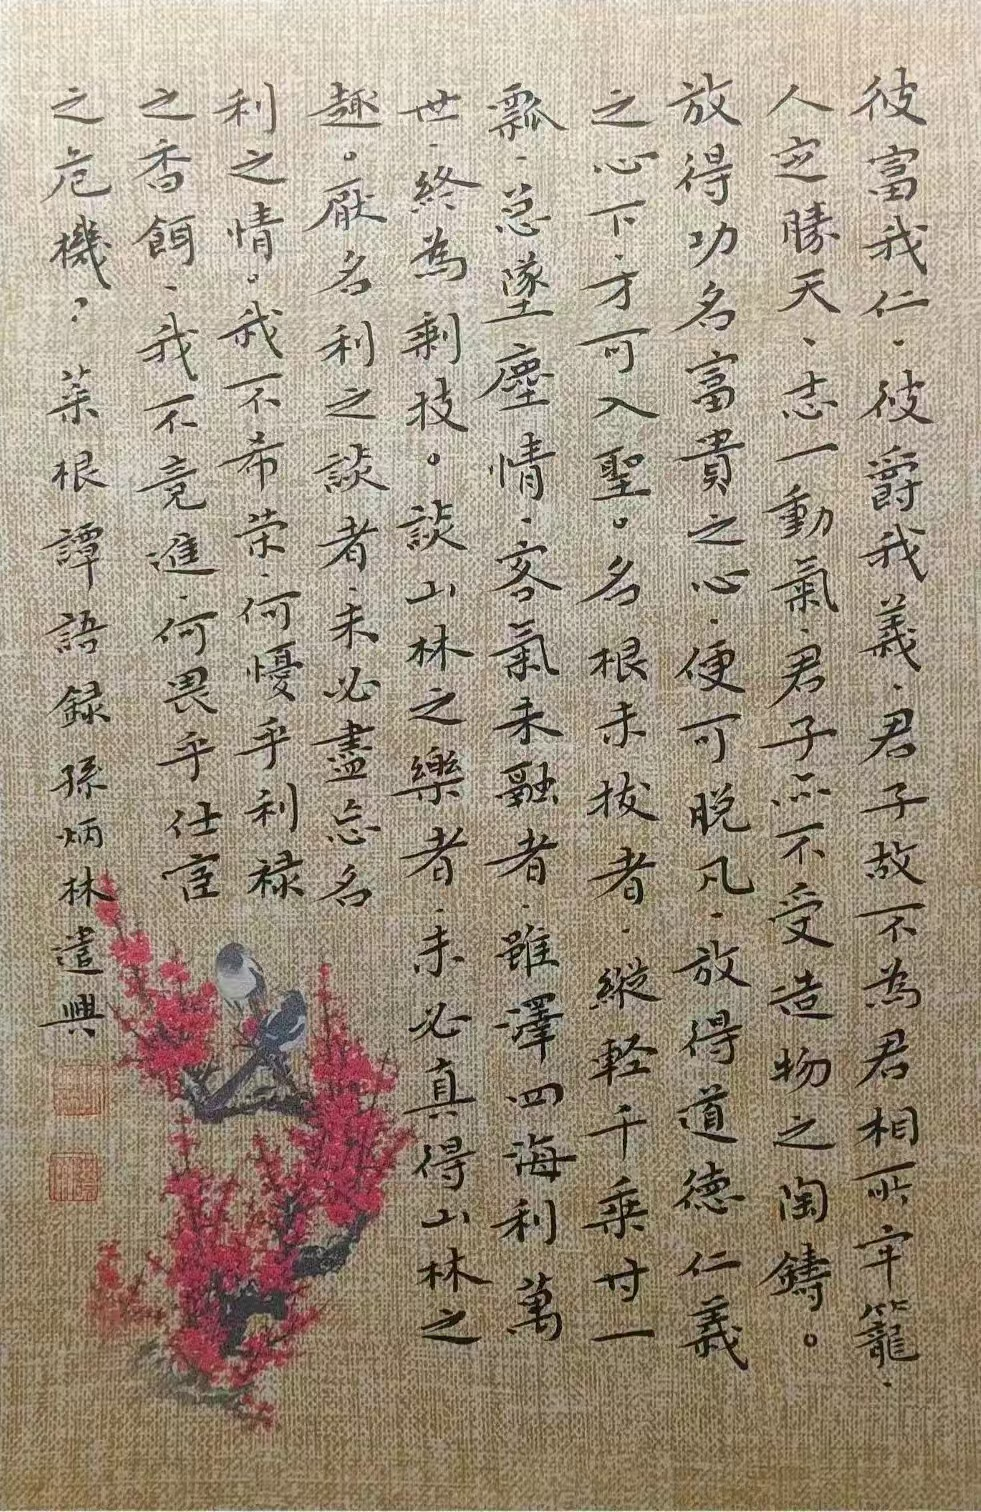 彼富我仁、彼爵我義、君子故不為君相所牢籠、
人定勝天、志一動氣、君子亦不受造物之陶鑄。
放得功名富貴之心、便可脫凡、放得道德仁義
之心下、才可入聖。名根未拔者、縱輕千乘甘一
瓢、总墜塵情、客氣未融者、雖澤四海利萬
世、終為剩技。談山林之樂者、未必真得山林之
趣。厭名利之談者、未必盡忘名
利之情。我不希荣、何憂乎利禄
之香餌、我不竞進、何畏乎仕宦
之危機？菜根譚語録孫炳林遣興